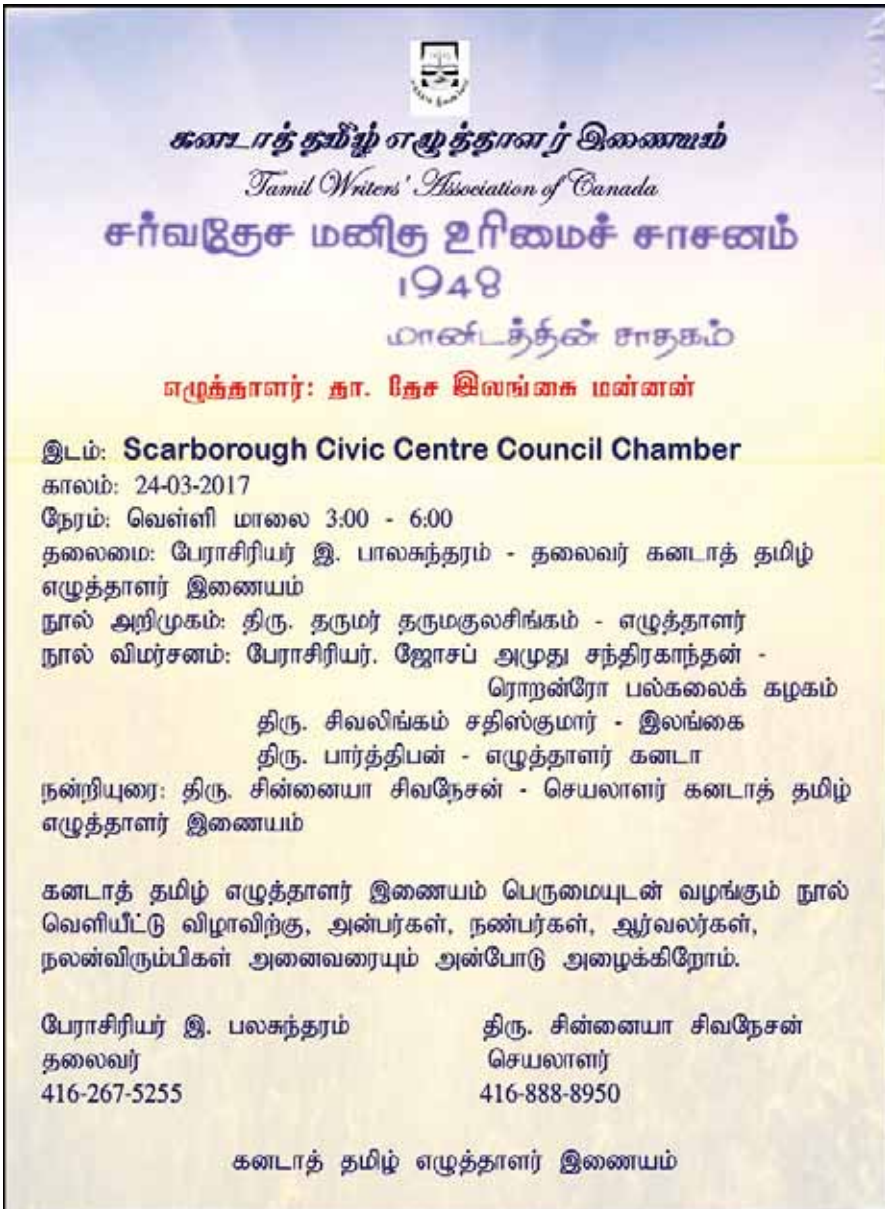 கனடாத் தமிழ் எழுத்தாளர் இணையம்
Tamil Writers' Association of Canada
சர்வதேச மனித உரிமைச் சாசனம்
1948
மானிடத்தின் சாதகம்
எழுத்தாளர்: தா. தேச இலங்கை மன்னன்
இடம்: Scarborough Civic Centre Council Chamber
காலம்: 24-03-2017
நேரம்: வெள்ளி மாலை 3:00 - 6:00
தலைமை: பேராசிரியர் இ. பாலசுந்தரம் - தலைவர் கனடாத் தமிழ்
எழுத்தாளர் இணையம்
நூல் அறிமுகம்: திரு. தருமர் தருமகுலசிங்கம் - எழுத்தாளர்
நூல் விமர்சனம்: பேராசிரியர். ஜோசப் அமுது சந்திரகாந்தன் -
ரொறன்ரோ பல்கலைக் கழகம்
திரு. சிவலிங்கம் சதிஸ்குமார் - இலங்கை
திரு. பார்த்திபன் - எழுத்தாளர் கனடா
நன்றியுரை: திரு. சின்னையா சிவநேசன் - செயலாளர் கனடாத் தமிழ்
எழுத்தாளர் இணையம்
கனடாத் தமிழ் எழுத்தாளர் இணையம் பெருமையுடன் வழங்கும் நூல்
வெளியீட்டு விழாவிற்கு, அன்பர்கள், நண்பர்கள், ஆர்வலர்கள்,
நலன்விரும்பிகள் அனைவரையும் அன்போடு அழைக்கிறோம்.
பேராசிரியர் இ. பலசுந்தரம்
தலைவர்
416-267-5255
திரு. சின்னையா சிவநேசன்
செயலாளர்
416-888-8950
கனடாத் தமிழ் எழுத்தாளர் இணையம்